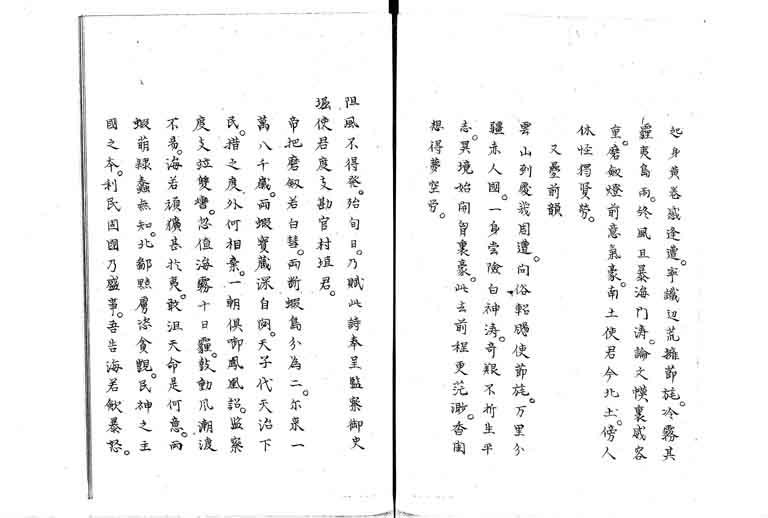 起身黄巻感逢遭。寧識辺荒擁節旄。冷霧其
霾夷島雨。終風且暴海門濤。論文幞裏感客
重。磨劔燈前意気豪。南土使君今北土。傍人
休怪獨賢勞。
又疊前韻
雲山到處我周遭。问俗軺驄使節旄。万里分
疆赤人國。一身嘗險白神濤。奇艱不折生平
志。異境始開胷裏豪。此去前程更茫渺。杳闻
想得夢空労。
阻風不得発。殆旬日。乃賦此詩奉呈監察御史
堀使君度支勘官村垣君。
帝把磨劔若白彗。両断蝦島分為二。尓来一
萬八千歳。両蝦寳蔵深自閟。天子代天治下
民。措之度外何相棄。一朝倶啣鳳凰詔。監察
度支竝雙轡。忽值海霧十日霾。鼓動風潮渡
不易。海若頑獷甚扵夷。敢沮天命是何意。両
蝦萌隷蠢無知。北鄰黠虜恣貪覬。民神之主
國之本。利民固國乃盛事。吾告海若歛暴怒。